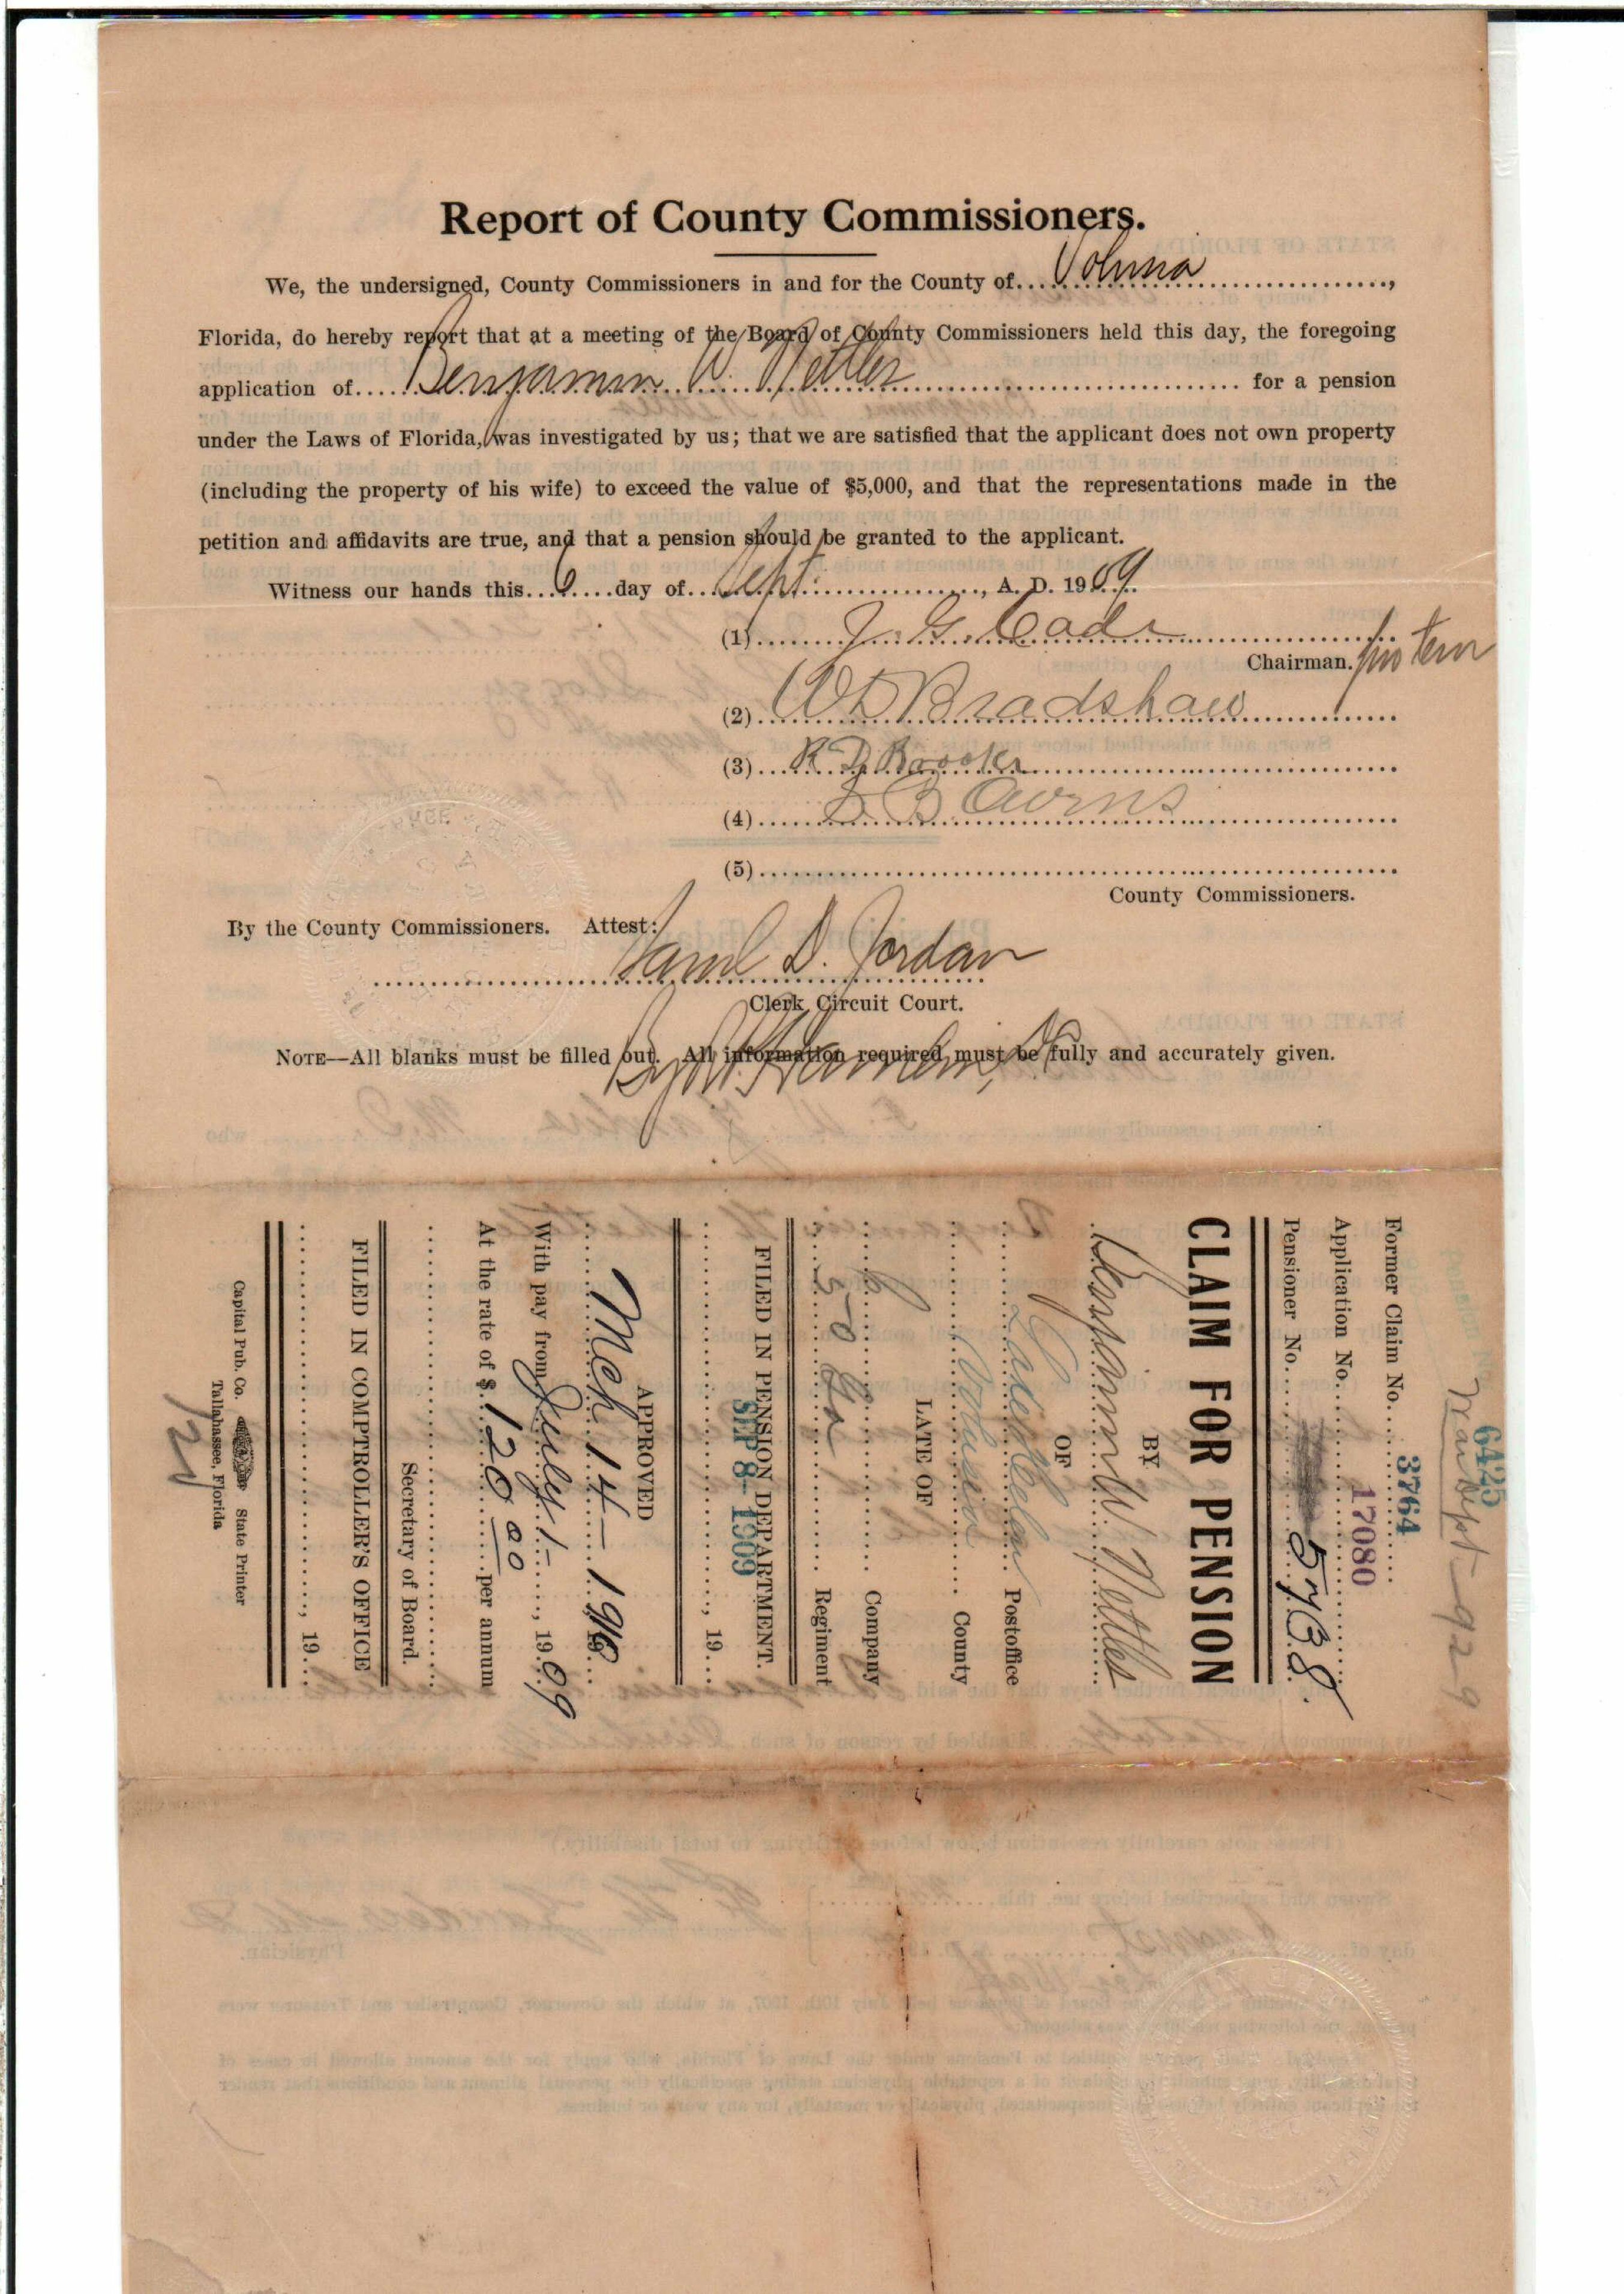 Report of County Commissioners.
We, the undersigned, County Commissioners in and for the County of Volusia,
Florida, do hereby report that at a meeting of the Board of County Commissioners held this day, the foregoing
application of Benjamin W. Nettles for a pension
under the Laws of Florida, was investigated by us; that we are satisfied that the applicant does not own property
(including the property of his wife) to exceed the value of $5,000, and that the representations made in the
petition and affidavits are true, and that a pension should be granted to the applicant.
Witness our hands this 6 day of Sept., A. D. 1909
(1) J. G. Cade
Chairman. pro tem
(2) W D Bradshaw
(3)
(4)
(5)
County Commissioners.
By the County Commissioners. Attest:
Saml D. Jordan
Clerk Circuit Court.
NOTE—All blanks must be filled out. All information required must be fully and accurately given.
6425
Former Claim No. 3764
Application No. 17080
Pensioner No. 5738.
CLAIM FOR PENSION
BY
Benjamin W. Nettles
OF
Lake Helen Postoffice
Volusia County
LATE OF
Company
50 Ga Regiment
FILED IN PENSION DEPARTMENT.
SEP 8 - 1909, 19
APPROVED
Mch 14 - 1910
With pay from July 1-, 1909
At the rate of $ 120.00 per annum
Secretary of Board.
FILED IN COMPTROLLER'S OFFICE
, 19
Capital Pub. Co. State Printer
Tallahassee, Florida